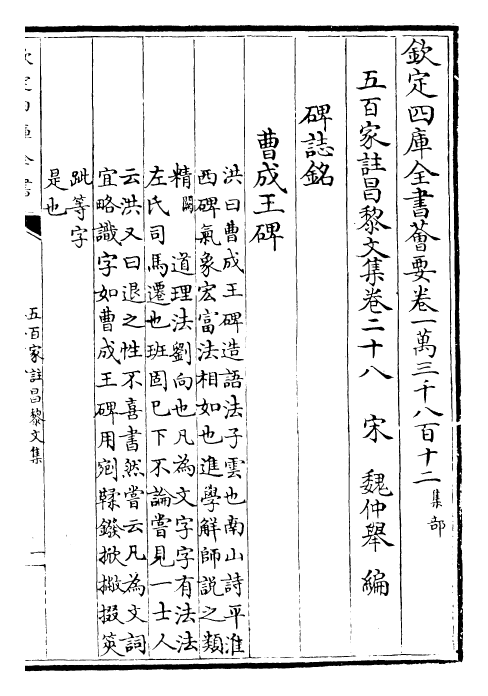 欽定四庫全書薈要卷一萬三千八百十二 集部
五百家註昌黎文集卷二十八 宋 魏仲舉 編
碑誌銘
曹成王碑
洪曰曹成王碑造語法子雲也南山詩平淮
西碑氣象宏富法相如也進學解師説之類
精闕 道理法劉向也凡為文字字有法法
左氏司馬遷也班固巳下不論嘗見一士人
云洪又曰退之性不喜書然嘗云凡為文詞
宜略識字如曹成王碑用剜鞣鏺掀撇掇筴
跐等字
是也
欽定四庫全書
五百家註昌黎文集
一